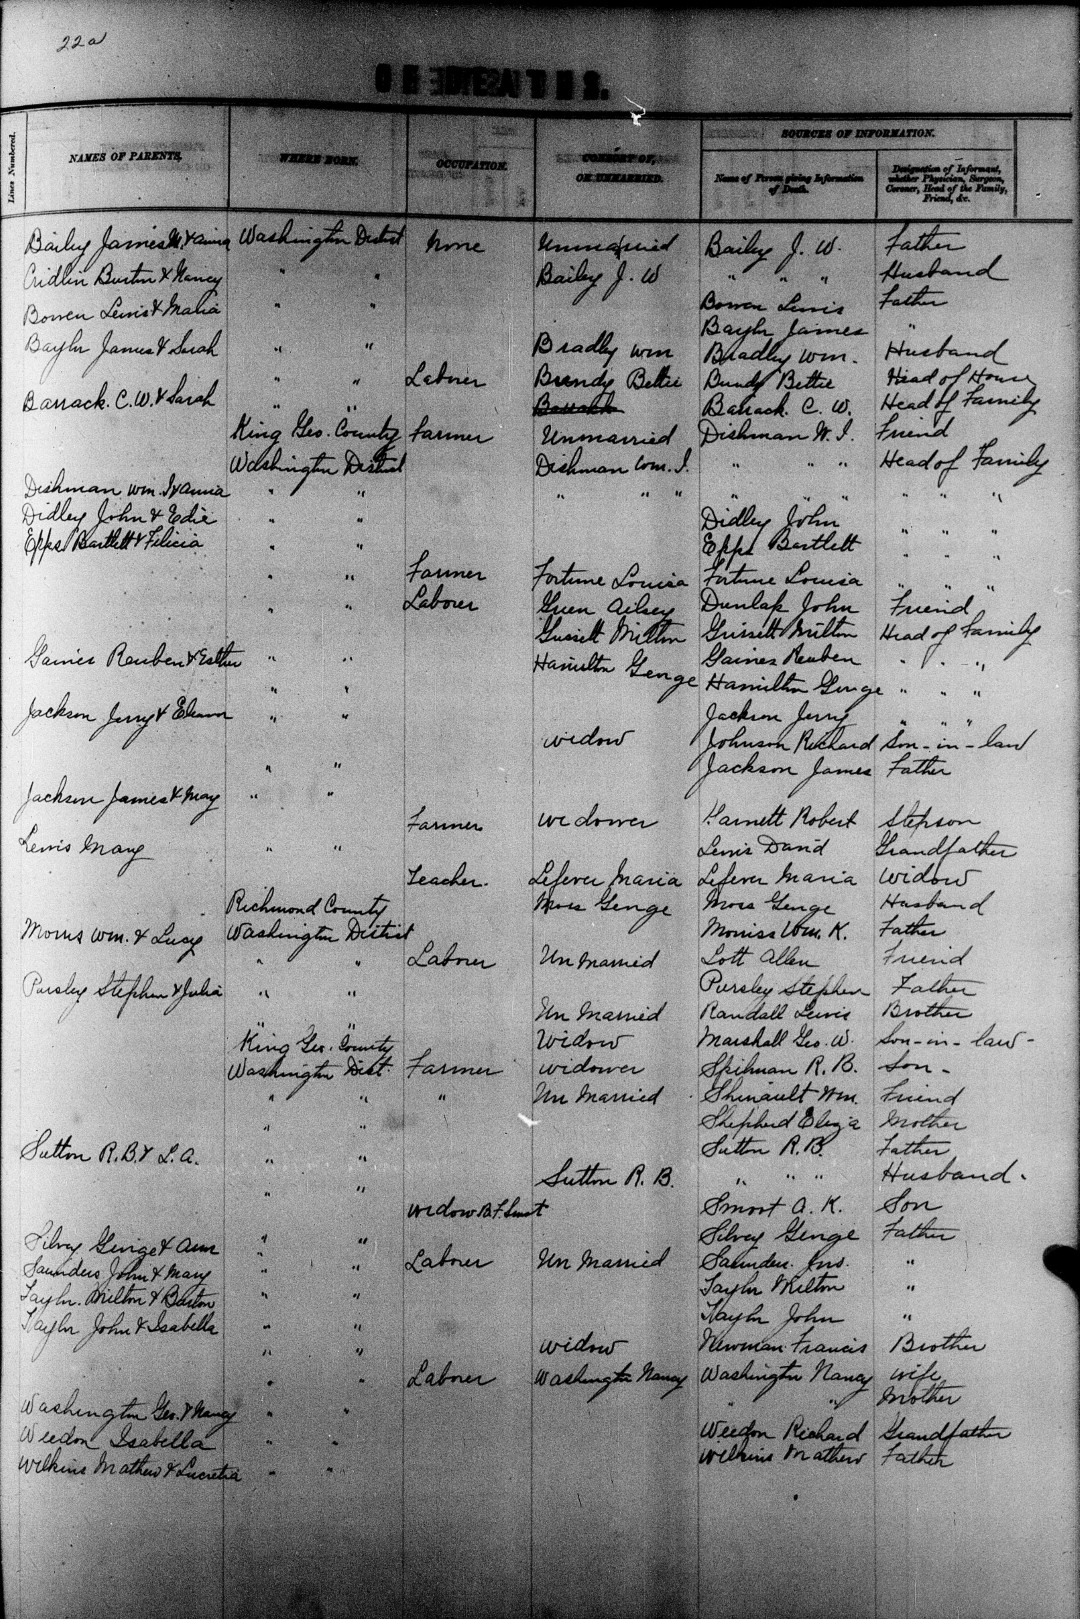 22a
OF DEATHS.
Lines Numbered.
NAMES OF PARENTS.
WHERE BORN.
OCCUPATION.
CONSORT OF, OR UNMARRIED.
SOURCES OF INFORMATION.
Name of Person giving Information of Death.
Designation of Informant, whether Physician, Surgeon, Coroner, Head of the Family, Friend, &c.
Bailey James W. & Anna Washington District None Unmarried Bailey J. W. Father
Cridlin Burton & Nancy " " Bailey J. W " " " Husband
Bowen Lewis & Malia " " Bowen Lewis Father
Baylor James "
Baylor James & Sarah " " Bradley Wm Bradley Wm. Husband
" " Laborer Bundy Bettie Bundy Bettie Head of House
Barrack. C. W. & Sarah " " Barrack C. W. Head of Family
King Geo. County Farmer Unmarried Dishman W. I. Friend
Washington District Dishman Wm. I. " " " Head of Family
Dishman Wm. I & Anna " " " " " " " " " " "
Didley John & Edie " " Didley John " " "
Epps Bartlett & Felicia " " Epps Bartlett " " "
" " Farmer Fortune Louisa Fortune Louisa " " "
" " Laborer Green Ailsey Dunlap John Friend
Gussett Milton Grissett Milton Head of Family
Gaines Reuben & Esther " " Hamilton George Gaines Reuben " " "
" " Hamilton George " " "
Jackson Jerry & Eleanor " " Jackson Jerry " " "
widow Johnson Richard Son-in-law
" " Jackson James Father
Jackson James & May " "
Farmer widower Garnett Robert Stepson
Lewis Mary " " Lewis David Grandfather
Teacher. Lefever Maria Lefever Maria Widow
Richmond County Moss George Moss George Husband
Morris Wm. & Lucy Washington District Morriss Wm. K. Father
" " Laborer Un Married Lott Allen Friend
Pursley Stephen & Julia " " Pursley Stephen Father
" " Un Married Randall Lewis Brother
King Geo. County Widow Marshall Geo. W. Son-in-law-
Washington Dist. Farmer widower Spilman R. B. Son-
" " " Un Married Shinault Wm. Friend
" " Shepherd Eliza Mother
Sutton R. B. & L. A. " " Sutton R. B. Father
Sutton R. B. " " " Husband.
" " widow B. F. Smoot Smoot A. K. Son
Silvey George & Ann " " Silvey George Father
Saunders John & Mary " " Laborer Un Married Saunders Jno. "
Taylor. Milton & Barton " " Taylor Milton "
Taylor John & Isabella " " Taylor John "
" " widow Newman Francis Brother
" " Laborer Washington Nancy Washington Nancy wife
Washington Geo. & Nancy " " " " Mother
Weedon Isabella " " Weedon Richard Grandfather
Wilkins Mathew & Lucretia " " Wilkins Mathew Father